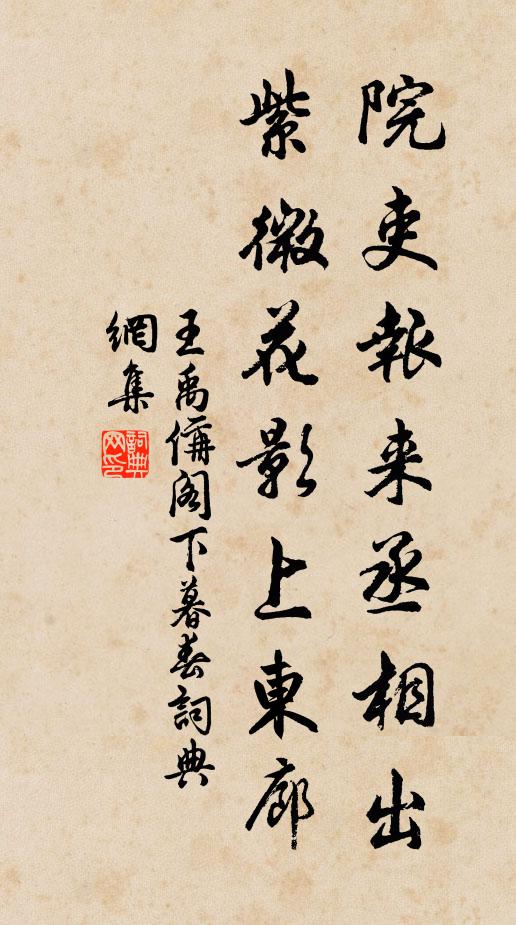 院吏報来丞相出
紫微花影上東廊
王禹偁閣下暮春詞典
網集
詞典
网印